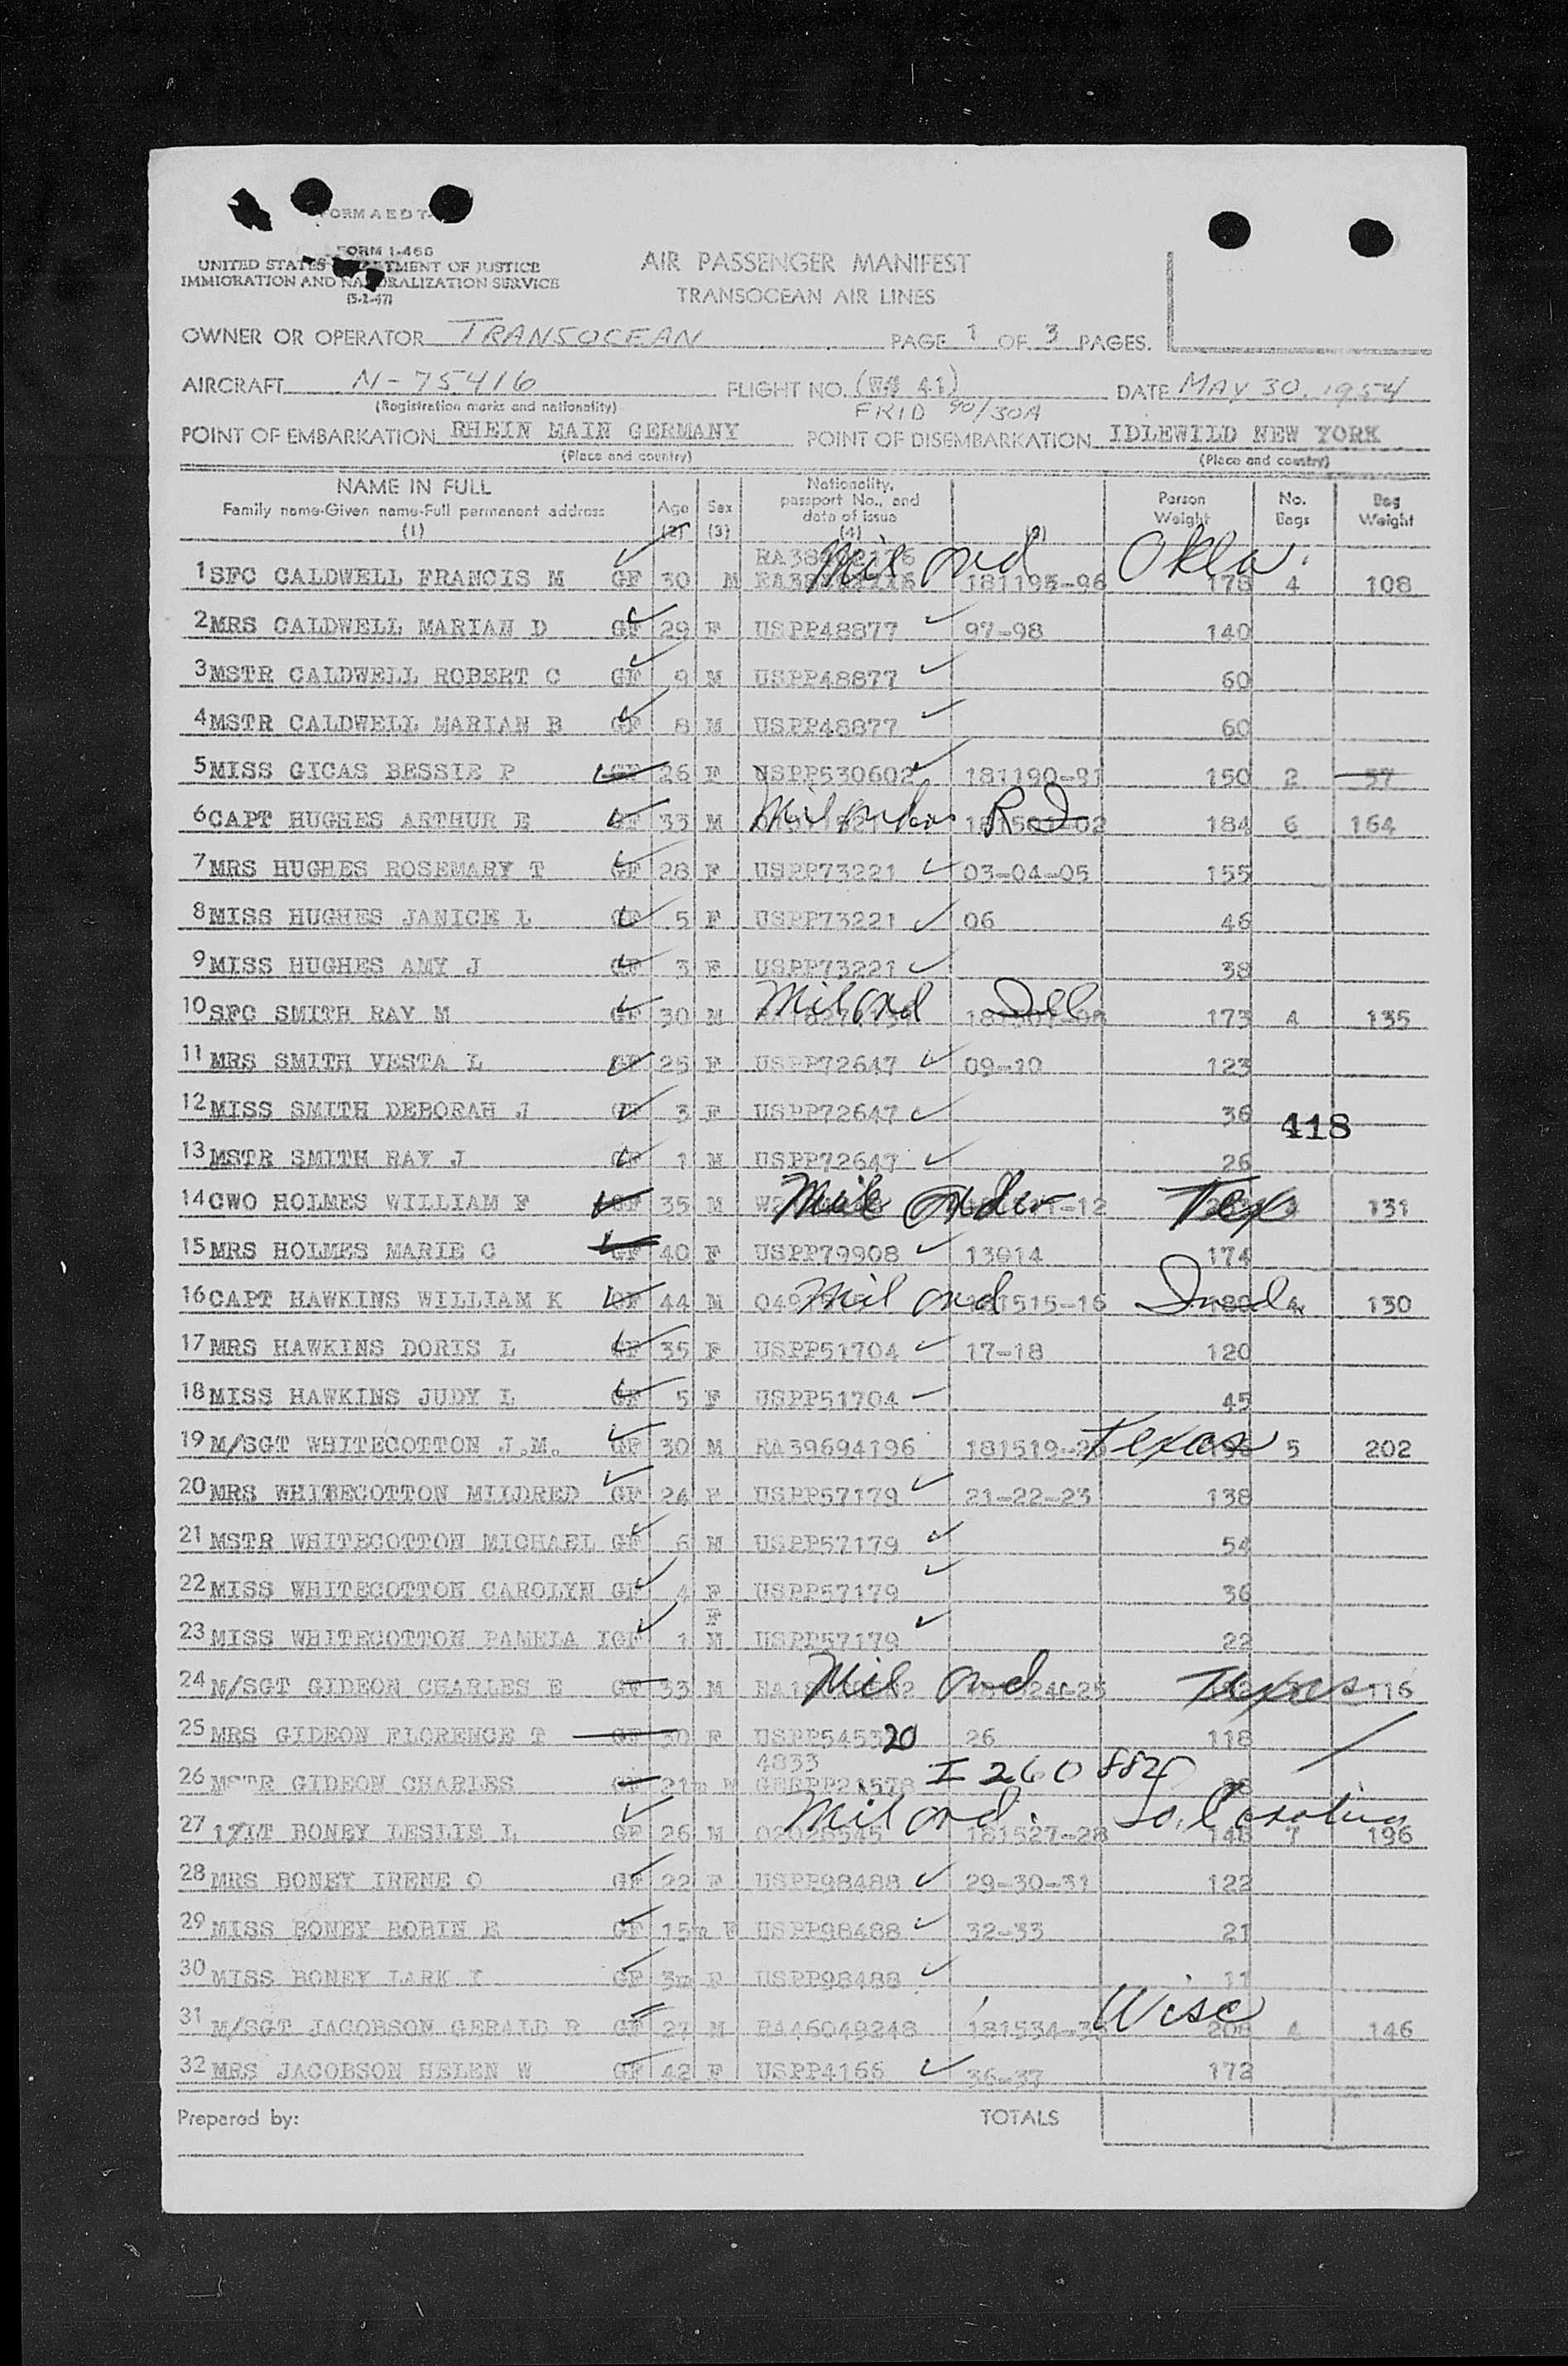 FORM A E D T-
FORM I-466
UNITED STATES DEPARTMENT OF JUSTICE
IMMIGRATION AND NATURALIZATION SERVICE
(5-1-47)
AIR PASSENGER MANIFEST
TRANSOCEAN AIR LINES
OWNER OR OPERATOR TRANSOCEAN PAGE 1 OF 3 PAGES.
AIRCRAFT N-75416 FLIGHT NO. DATE MAY 30, 1954
(Registration marks and nationality) FRID 90/30A
POINT OF EMBARKATION RHEIN MAIN GERMANY POINT OF DISEMBARKATION IDLEWILD NEW YORK
(Place and country) (Place and country)
NAME IN FULL Age Sex Nationality, passport No., and date of issue Person Weight No. Bags Bag Weight
Family name-Given name-Full permanent address
(1) (2) (3) (4)
1 SFC CALDWELL FRANCIS M GF 30 M Mil ord 181195-96 Okla. 178 4 108
2 MRS CALDWELL MARIAN D GF 29 F USPP48877 97-98 140
3 MSTR CALDWELL ROBERT C GF 9 M USPP48877 60
4 MSTR CALDWELL MARIAN B GF 8 M USPP48877 60
5 MISS GICAS BESSIE P GF 26 F USPP530602 181190-91 150 2 57
6 CAPT HUGHES ARTHUR E GF 33 M Mil orders R I 184 6 164
7 MRS HUGHES ROSEMARY T GF 28 F USPP73221 03-04-05 155
8 MISS HUGHES JANICE L GF 5 F USPP73221 06 46
9 MISS HUGHES AMY J GF 3 F USPP73221 38
10 SFC SMITH RAY M GF 30 M Mil ord Ill 173 4 135
11 MRS SMITH VESTA L GF 25 F USPP72647 09-10 123
12 MISS SMITH DEBORAH J GF 3 F USPP72647 36
418
13 MSTR SMITH RAY J GF 1 M USPP72647 26
14 CWO HOLMES WILLIAM F GF 35 M Mil order Tex 131
15 MRS HOLMES MARIE C GF 40 F USPP79908 13014 174
16 CAPT HAWKINS WILLIAM K GF 44 M Mil ord 181515-16 Ind. 180 4 130
17 MRS HAWKINS DORIS L GF 35 F USPP51704 17-18 120
18 MISS HAWKINS JUDY L GF 5 F USPP51704 45
19 M/SGT WHITECOTTON J.M. GF 30 M RA39694196 181519-20 Texas 5 202
20 MRS WHITECOTTON MILDRED GF 24 F USPP57179 21-22-23 138
21 MSTR WHITECOTTON MICHAEL GF 6 M USPP57179 54
22 MISS WHITECOTTON CAROLYN GF 4 F USPP57179 36
F
23 MISS WHITECOTTON PAMELA IGF 1 M USPP57179 22
24 M/SGT GIDEON CHARLES E GF 33 M Mil ord. Texas 116
25 MRS GIDEON FLORENCE T GF 30 F 20 26 118
4833
26 MSTR GIDEON CHARLES GF 21m M I 260 882
27 1/LT BONEY LESLIE L GF 26 M Mil ord. 181527-28 So. Carolina 148 7 196
28 MRS BONEY IRENE O GF 22 F USPP98488 29-30-31 122
29 MISS BONEY ROBIN E GF 15m F USPP98488 32-33 21
30 MISS BONEY LARK I GF 3m F USPP98488 11
31 M/SGT JACOBSON GERALD R GF 27 M RA46049248 181534-35 Wisc 208 4 146
32 MRS JACOBSON HELEN W GF 42 F USPP4166 36-37 172
Prepared by: TOTALS